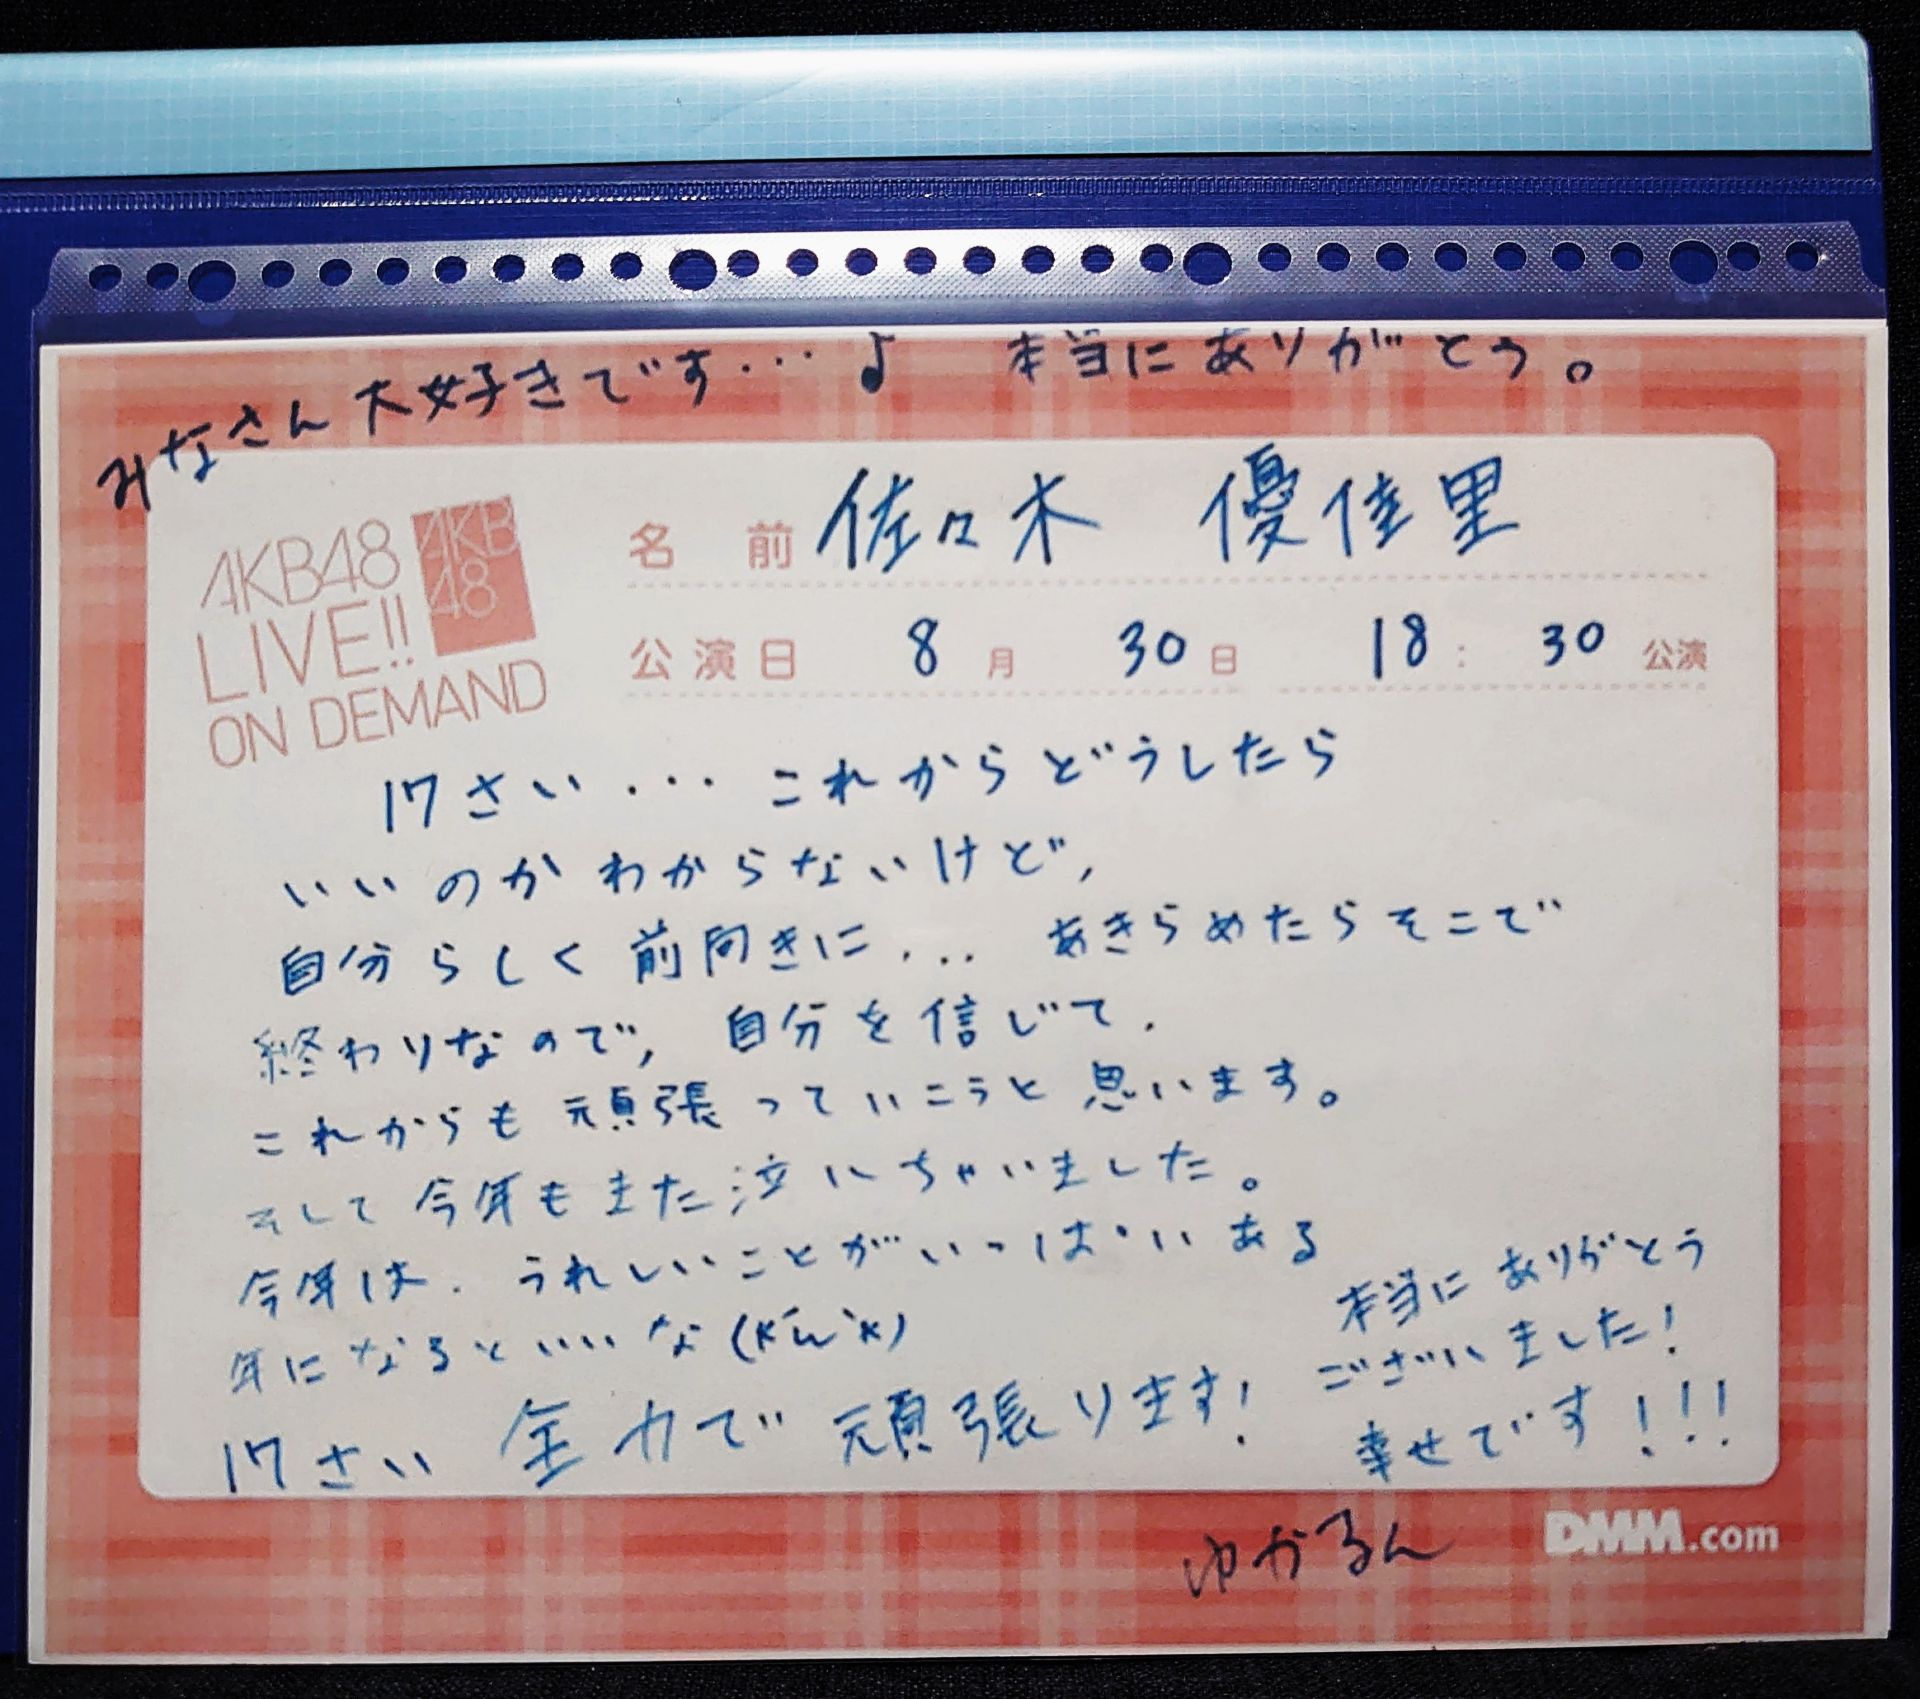 みなさん大好きです…♪ 本当にありがとう。
AKB48
LIVE!!
ON DEMAND
AKB
48
名前 佐々木 優佳里
公演日 8月 30日 18:30公演
17さい...これからどうしたら
いいのかわからないけど、
自分らしく前向きに...あきらめたらそこで
終わりなので、自分を信じて、
これからも頑張っていこうと思います。
そして今年もまた泣いちゃいました。
今年は、うれしいことがいっぱいある
年になるといいな(*´ω`*)
17さい 全力で頑張ります!
本当にありがとう
ございました!
幸せです!!!
ゆかるん
DMM.com